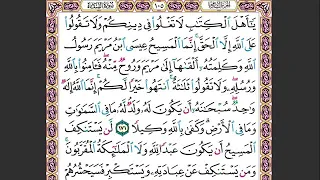 يَٰٓأَهْلَ ٱلْكِتَٰبِ لَا تَغْلُوا۟ فِى دِينِكُمْ وَلَا تَقُولُوا۟
عَلَى ٱللَّهِ إِلَّا ٱلْحَقَّ إِنَّمَا ٱلْمَسِيحُ عِيسَى ٱبْنُ مَرْيَمَ رَسُولُ
ٱللَّهِ وَكَلِمَتُهُۥٓ أَلْقَىٰهَآ إِلَىٰ مَرْيَمَ وَرُوحٌ مِّنْهُ فَـَٔامِنُوا۟ بِٱللَّهِ
وَرُسُلِهِۦ وَلَا تَقُولُوا۟ ثَلَٰثَةٌ ٱنتَهُوا۟ خَيْرًا لَّكُمْ إِنَّمَا ٱللَّهُ إِلَٰهٌ
وَٰحِدٌ سُبْحَٰنَهُۥٓ أَن يَكُونَ لَهُۥ وَلَدٌ لَّهُۥ مَا فِى ٱلسَّمَٰوَٰتِ
وَمَا فِى ٱلْأَرْضِ وَكَفَىٰ بِٱللَّهِ وَكِيلًا ١٧١ لَّن يَسْتَنكِفَ
ٱلْمَسِيحُ أَن يَكُونَ عَبْدًا لِّلَّهِ وَلَا ٱلْمَلَٰٓئِكَةُ ٱلْمُقَرَّبُونَ
وَمَن يَسْتَنكِفْ عَنْ عِبَادَتِهِۦ وَيَسْتَكْبِرْ فَسَيَحْشُرُهُمْ